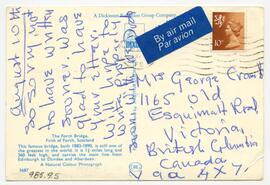 A Dickinson Robinson Group Company
August 10th
So sorry not
to have written
sooner. Was
glad to get
your letter
Will hope to
By air mail
Par avion
10P
Mrs George Grant
1165 Old
Esquimalt Road
Victoria,
British Columbia
Canada
9a 4X7,
The Forth Bridge,
Firth of Forth, Scotland
This famous bridge, built 1883-1890, is still one of
the greatest in the world. It is 1½ miles long and
360 feet high, and carries the main line from
Edinburgh to Dundee and Aberdeen.
A Natural Colour Photograph
3687
985.95